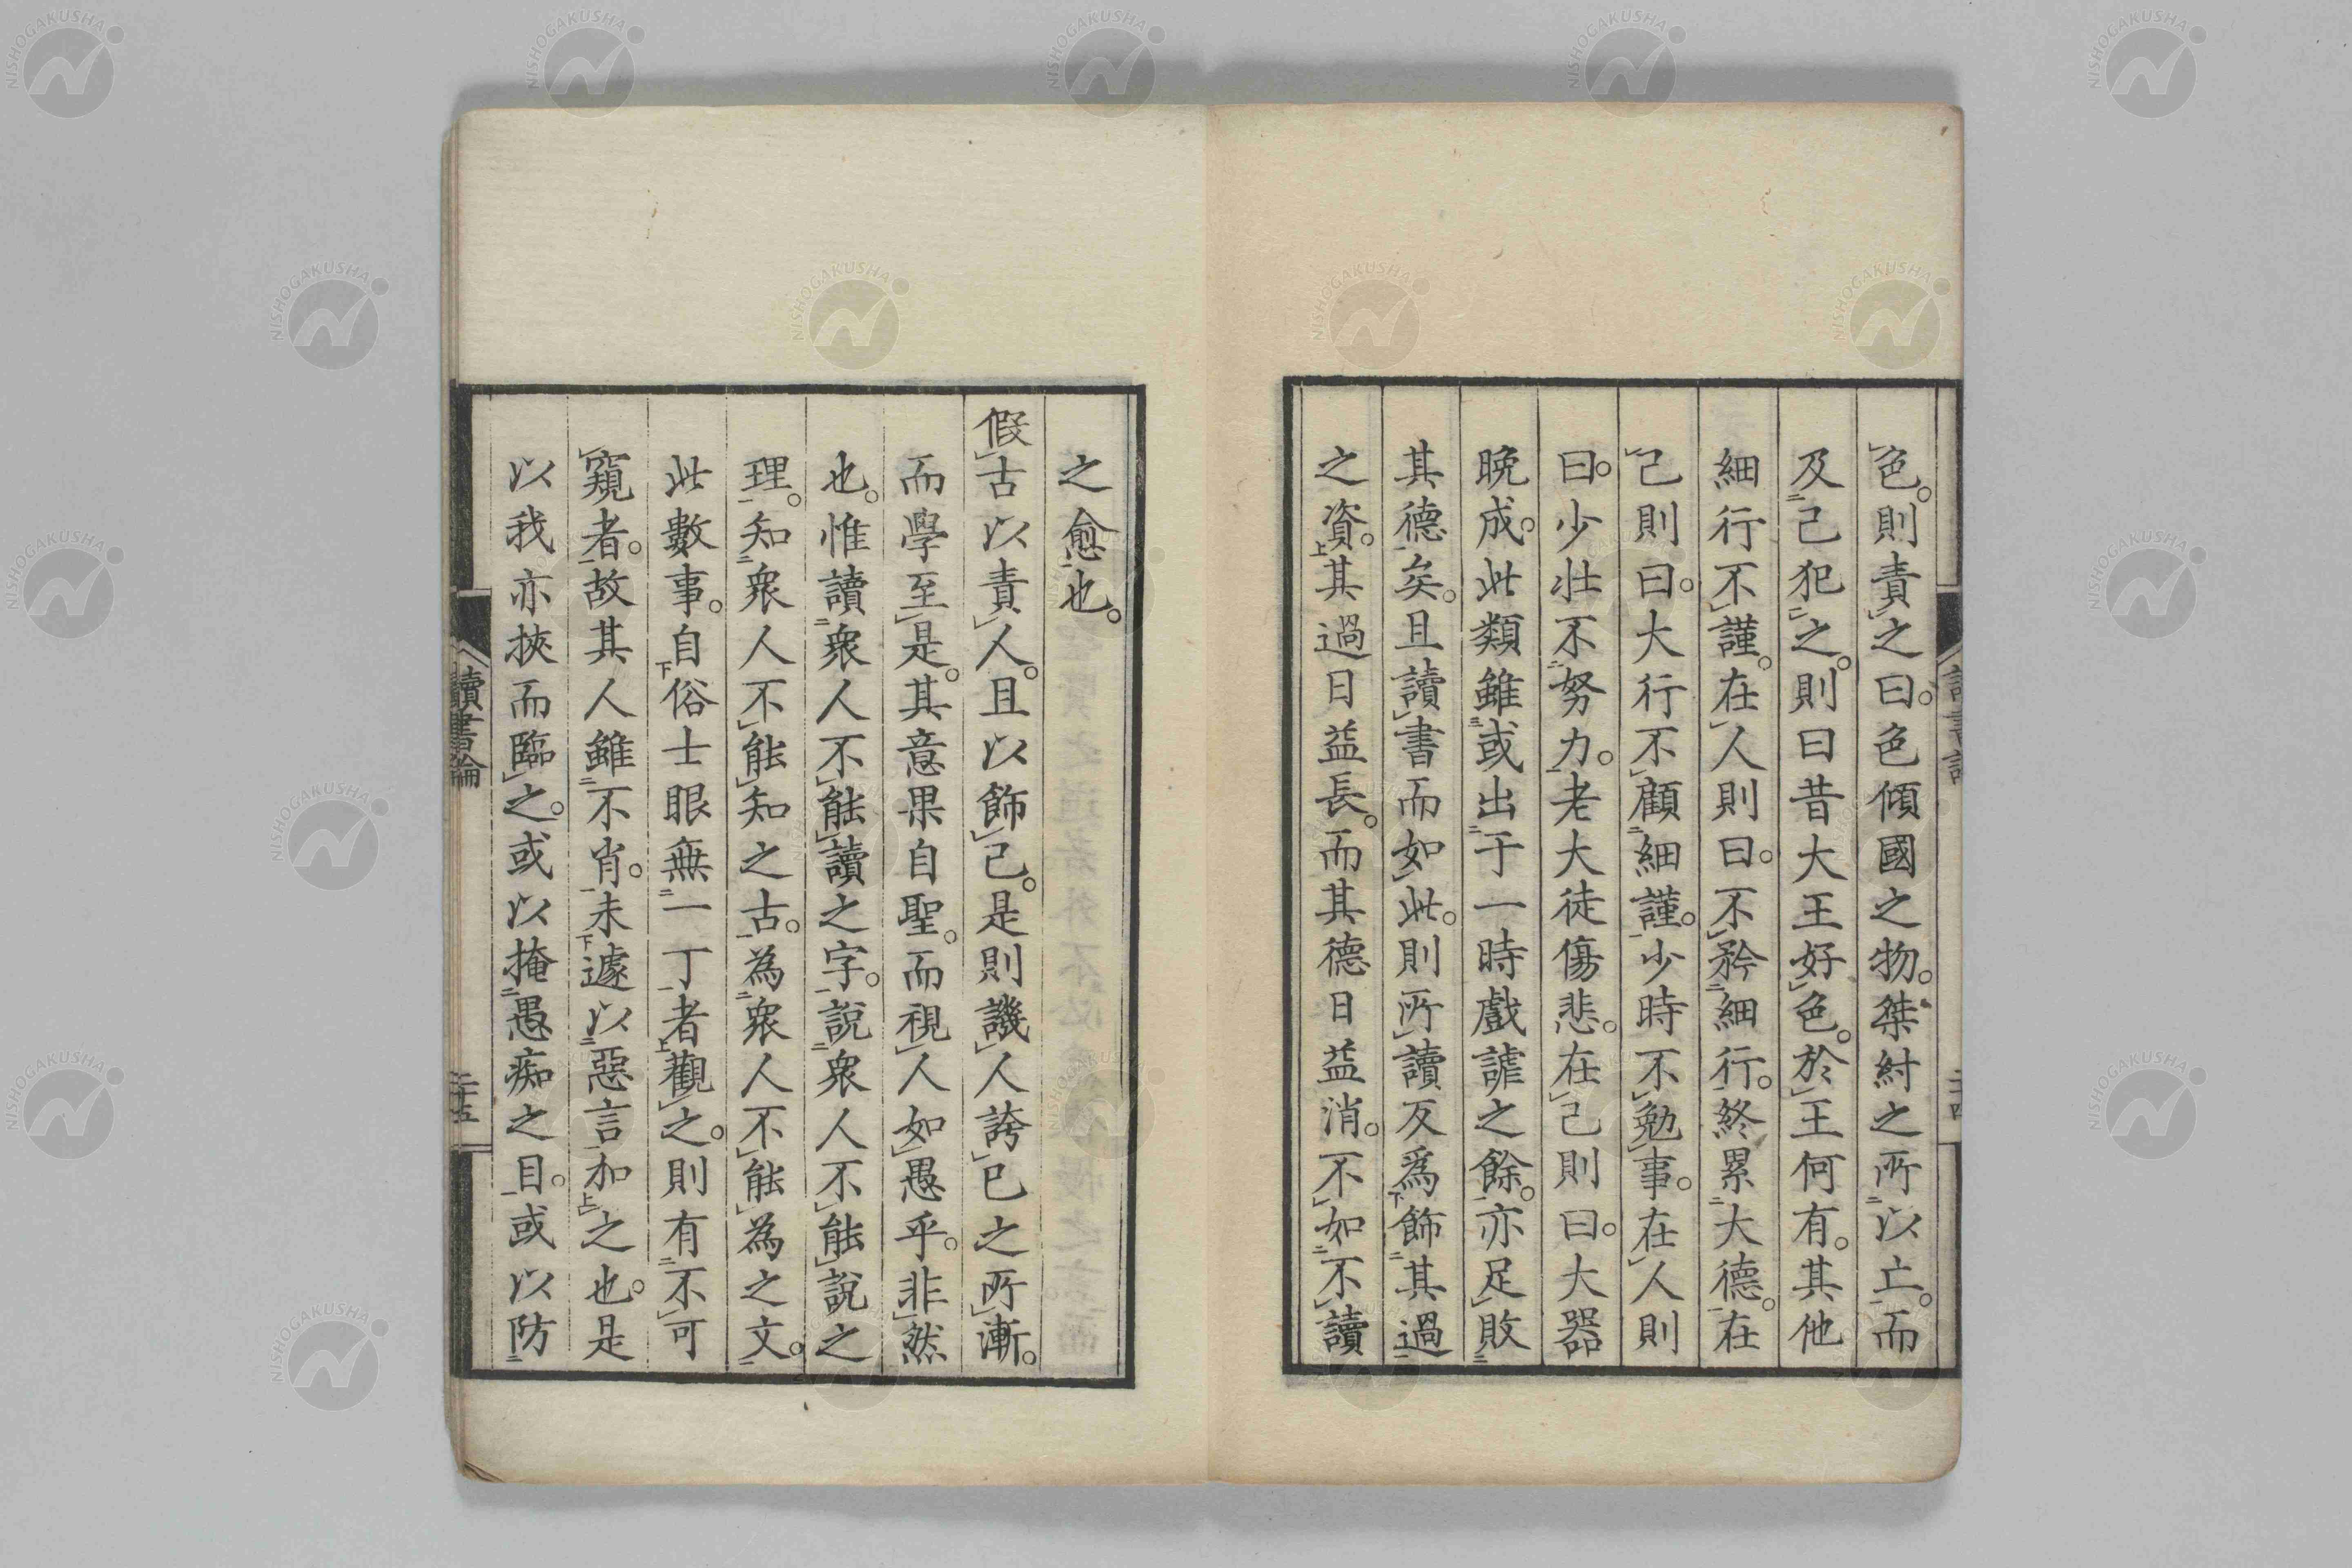 色。則責之曰。色傾國之物。桀紂之所以亡。而
及己犯之。則曰昔大王好色。於王何有。其他
細行不謹。在人則曰。不矜細行。終累大德。在
己則曰。大行不顧細謹。少時不勉事。在人則
曰。少壯不努力。老大徒傷悲。在己則曰。大器
晩成。此類雖或出于一時戲謔之餘。亦足敗
其德矣。且讀書而如此。則所讀反爲飾其過
之資。其過日益長。而其德日益消。不如不讀
之愈也。
假古以責人。且以飾己。是則譏人誇己之所漸。
而學至是。其意果自聖。而視人如愚乎。非然
也。惟讀衆人不能讀之字。說衆人不能說之
理。知衆人不能知之古。為衆人不能為之文。
此數事。自俗士眼無一丁者觀之。則有不可
窺者。故其人雖不肖。未遽以惡言加之也。是
以我亦挾而臨之。或以掩愚痴之目。或以防
讀書論
二十五
NISHOGAKUSHA